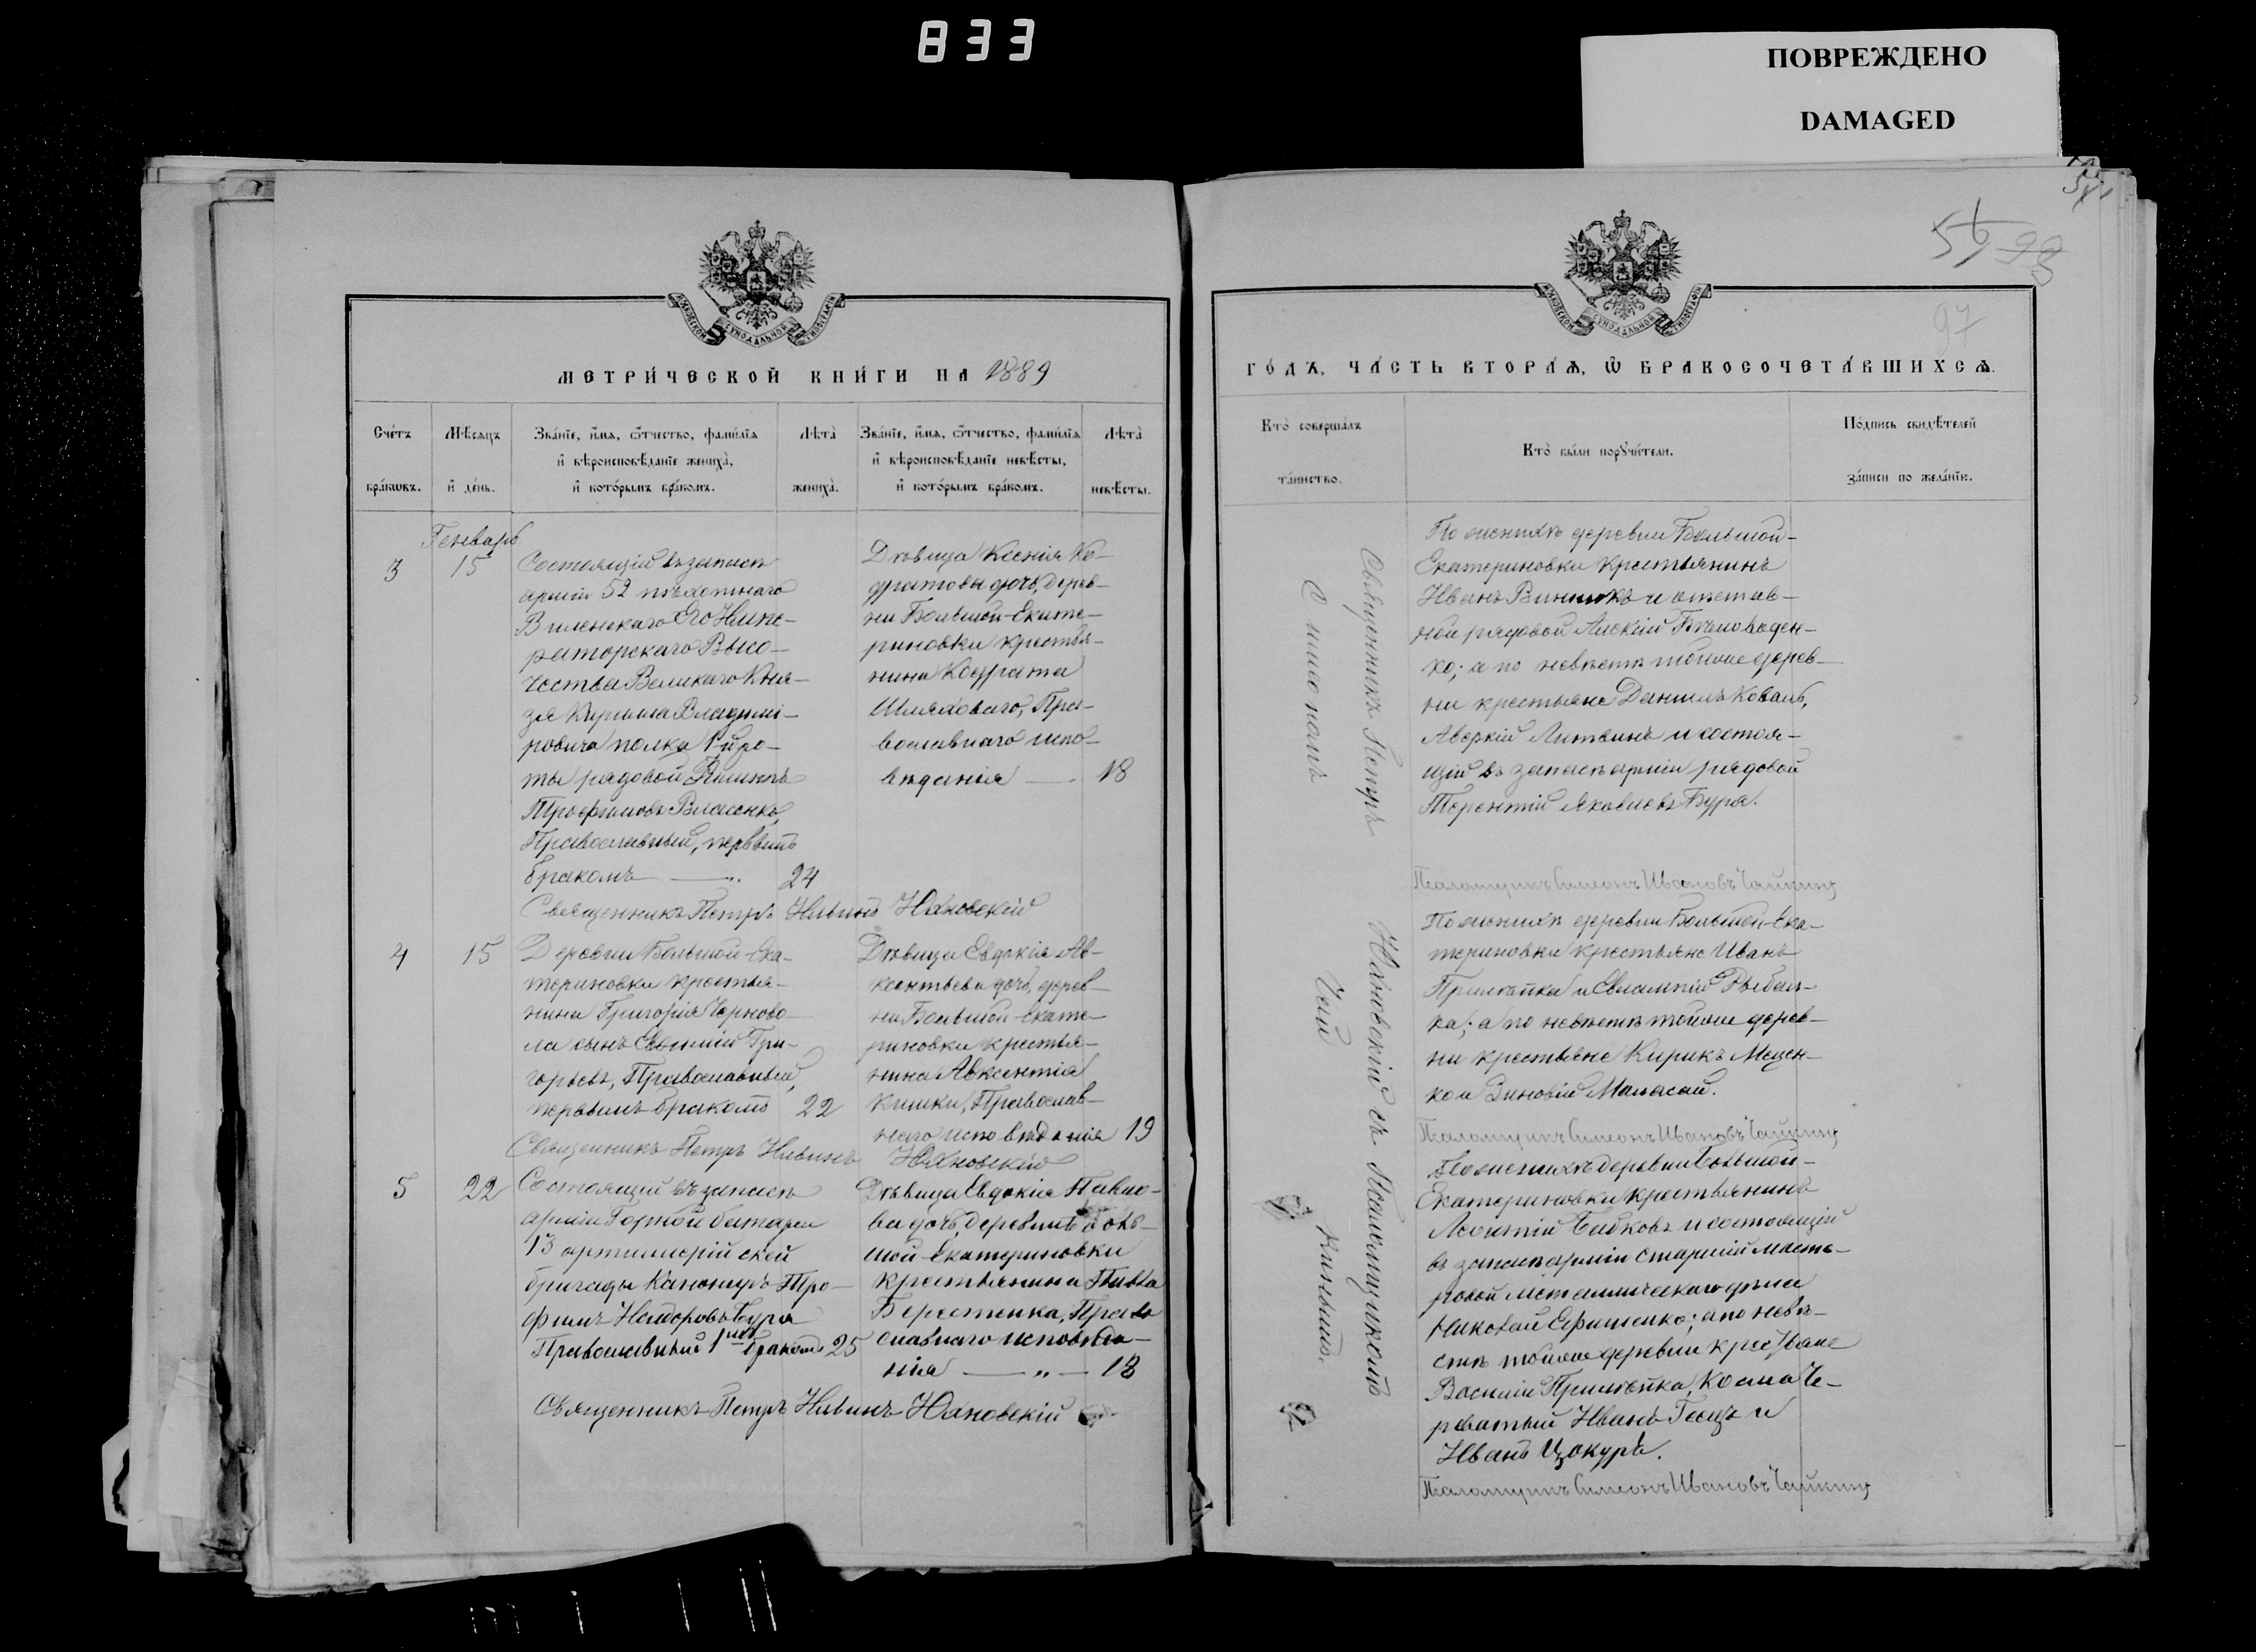 833
ПОВРЕЖДЕНО
DAMAGED
МЕТРИ́ЧЕСКОЙ КНИ́ГИ НА 1889
Сче́тъ бра́кѡвъ.
Мѣ́сяцъ и҆ де́нь.
Зва́нїе, и҆́мѧ, ѻ҆́тчество, фами́лїѧ и҆ вѣроисповѣ́данїе жениха̀, и҆ кото́рымъ бра́комъ.
Лѣта̀ жениха̀.
Зва́нїе, и҆́мѧ, ѻ҆́тчество, фами́лїѧ и҆ вѣроисповѣ́данїе невѣ́сты, и҆ кото́рымъ бра́комъ.
Лѣта̀ невѣ́сты.
Генварь
3
15
Состоящій въ запасѣ
арміи 52 пѣхотнаго
Виленскаго Его Импе-
раторскаго Высо-
чества Великаго Кня-
зя Кирилла Владимі-
ровича полка 1й ро-
ты рядовой
Трофимовъ Власенко,
Православный, первымъ
бракомъ — „ 24
Дѣвица Ксенія Ко-
дратова дочь, дерев-
ни Большой-Екате-
риновки крестья-
нина Кодрата
Шляховаго, Пра-
вославнаго испо-
вѣданія — 18
Священникъ Петръ Нивинъ Юхновскій
4
15
Деревни Большой-Ека-
териновки крестья-
нина Григорія Чорново
ла сынъ Евфимій Гри-
горьевъ, Православный,
первымъ бракомъ 22
Дѣвица Евдокія Ав-
ксентьева дочь, дерев-
ни Большой-Екате-
риновки крестья-
нина Авксентія
Кишки, Православ-
наго исповѣданія 19
Священникъ Петръ Нивинъ Юхновскій
5
22
Состоящій въ запасѣ
арміи Горной батареи
13 артиллерійской
бригады Канониръ Тро-
фимъ Бура
Православный 1мъ бракомъ 25
Дѣвица Евдокія Павло-
ва дочь, деревни Боль-
шой-Екатериновки
крестьянина Павла
Берестенка, Право
славнаго исповѣда-
нія — „ — 18
Священникъ Петръ Нивинъ Юхновскій
56
98
97
ГО́ДЪ, ЧА́СТЬ ВТОРА́Ѧ, Ѡ҆ БРАКОСОЧЕТА́ВШИХСѦ.
Кто̀ соверша́лъ та́инство.
Кто̀ бы́ли порꙋчи́тели.
По́дпись свидѣ́телей за́писи по жела́нїю.
Священникъ Петръ Юхновскій съ Псаломщикомъ
Симеономъ Чай
кинымъ.
По женихѣ деревни Большой-
Екатериновки крестьянинъ
Иванъ Винникъ и отстав-
ной рядовой Алексій
ко; а по невѣстѣ тойже дерев-
ни крестьяне Даніилъ Коваль,
Аверкій Литвинъ и состоя-
щій въ запасѣ арміи рядовой
Терентій Яковлевъ Бура.
Псаломщикъ Симеонъ Ивановъ Чайкинъ
По женихѣ деревни Большой-Ека-
териновки крестьяне Иванъ
Прилѣпка и Евлампій Рыбал-
ка; а по невѣстѣ тойже дерев-
ни крестьяне Кирикъ Мацен-
ко и Зиновій
Псаломщикъ Симеонъ Ивановъ Чайкинъ
По женихѣ деревни Большой-
Екатериновки крестьянинъ
Леонтій Бабковъ и состоящій
въ запасѣ арміи старшій масте-
ровой
Николай Ефименко; а по невѣ-
стѣ тойже деревни крестьяне
Василій Прилѣпка, Косма Че-
реватый Иванъ и
Иванъ Цокуръ.
Псаломщикъ Симеонъ Ивановъ Чайкинъ